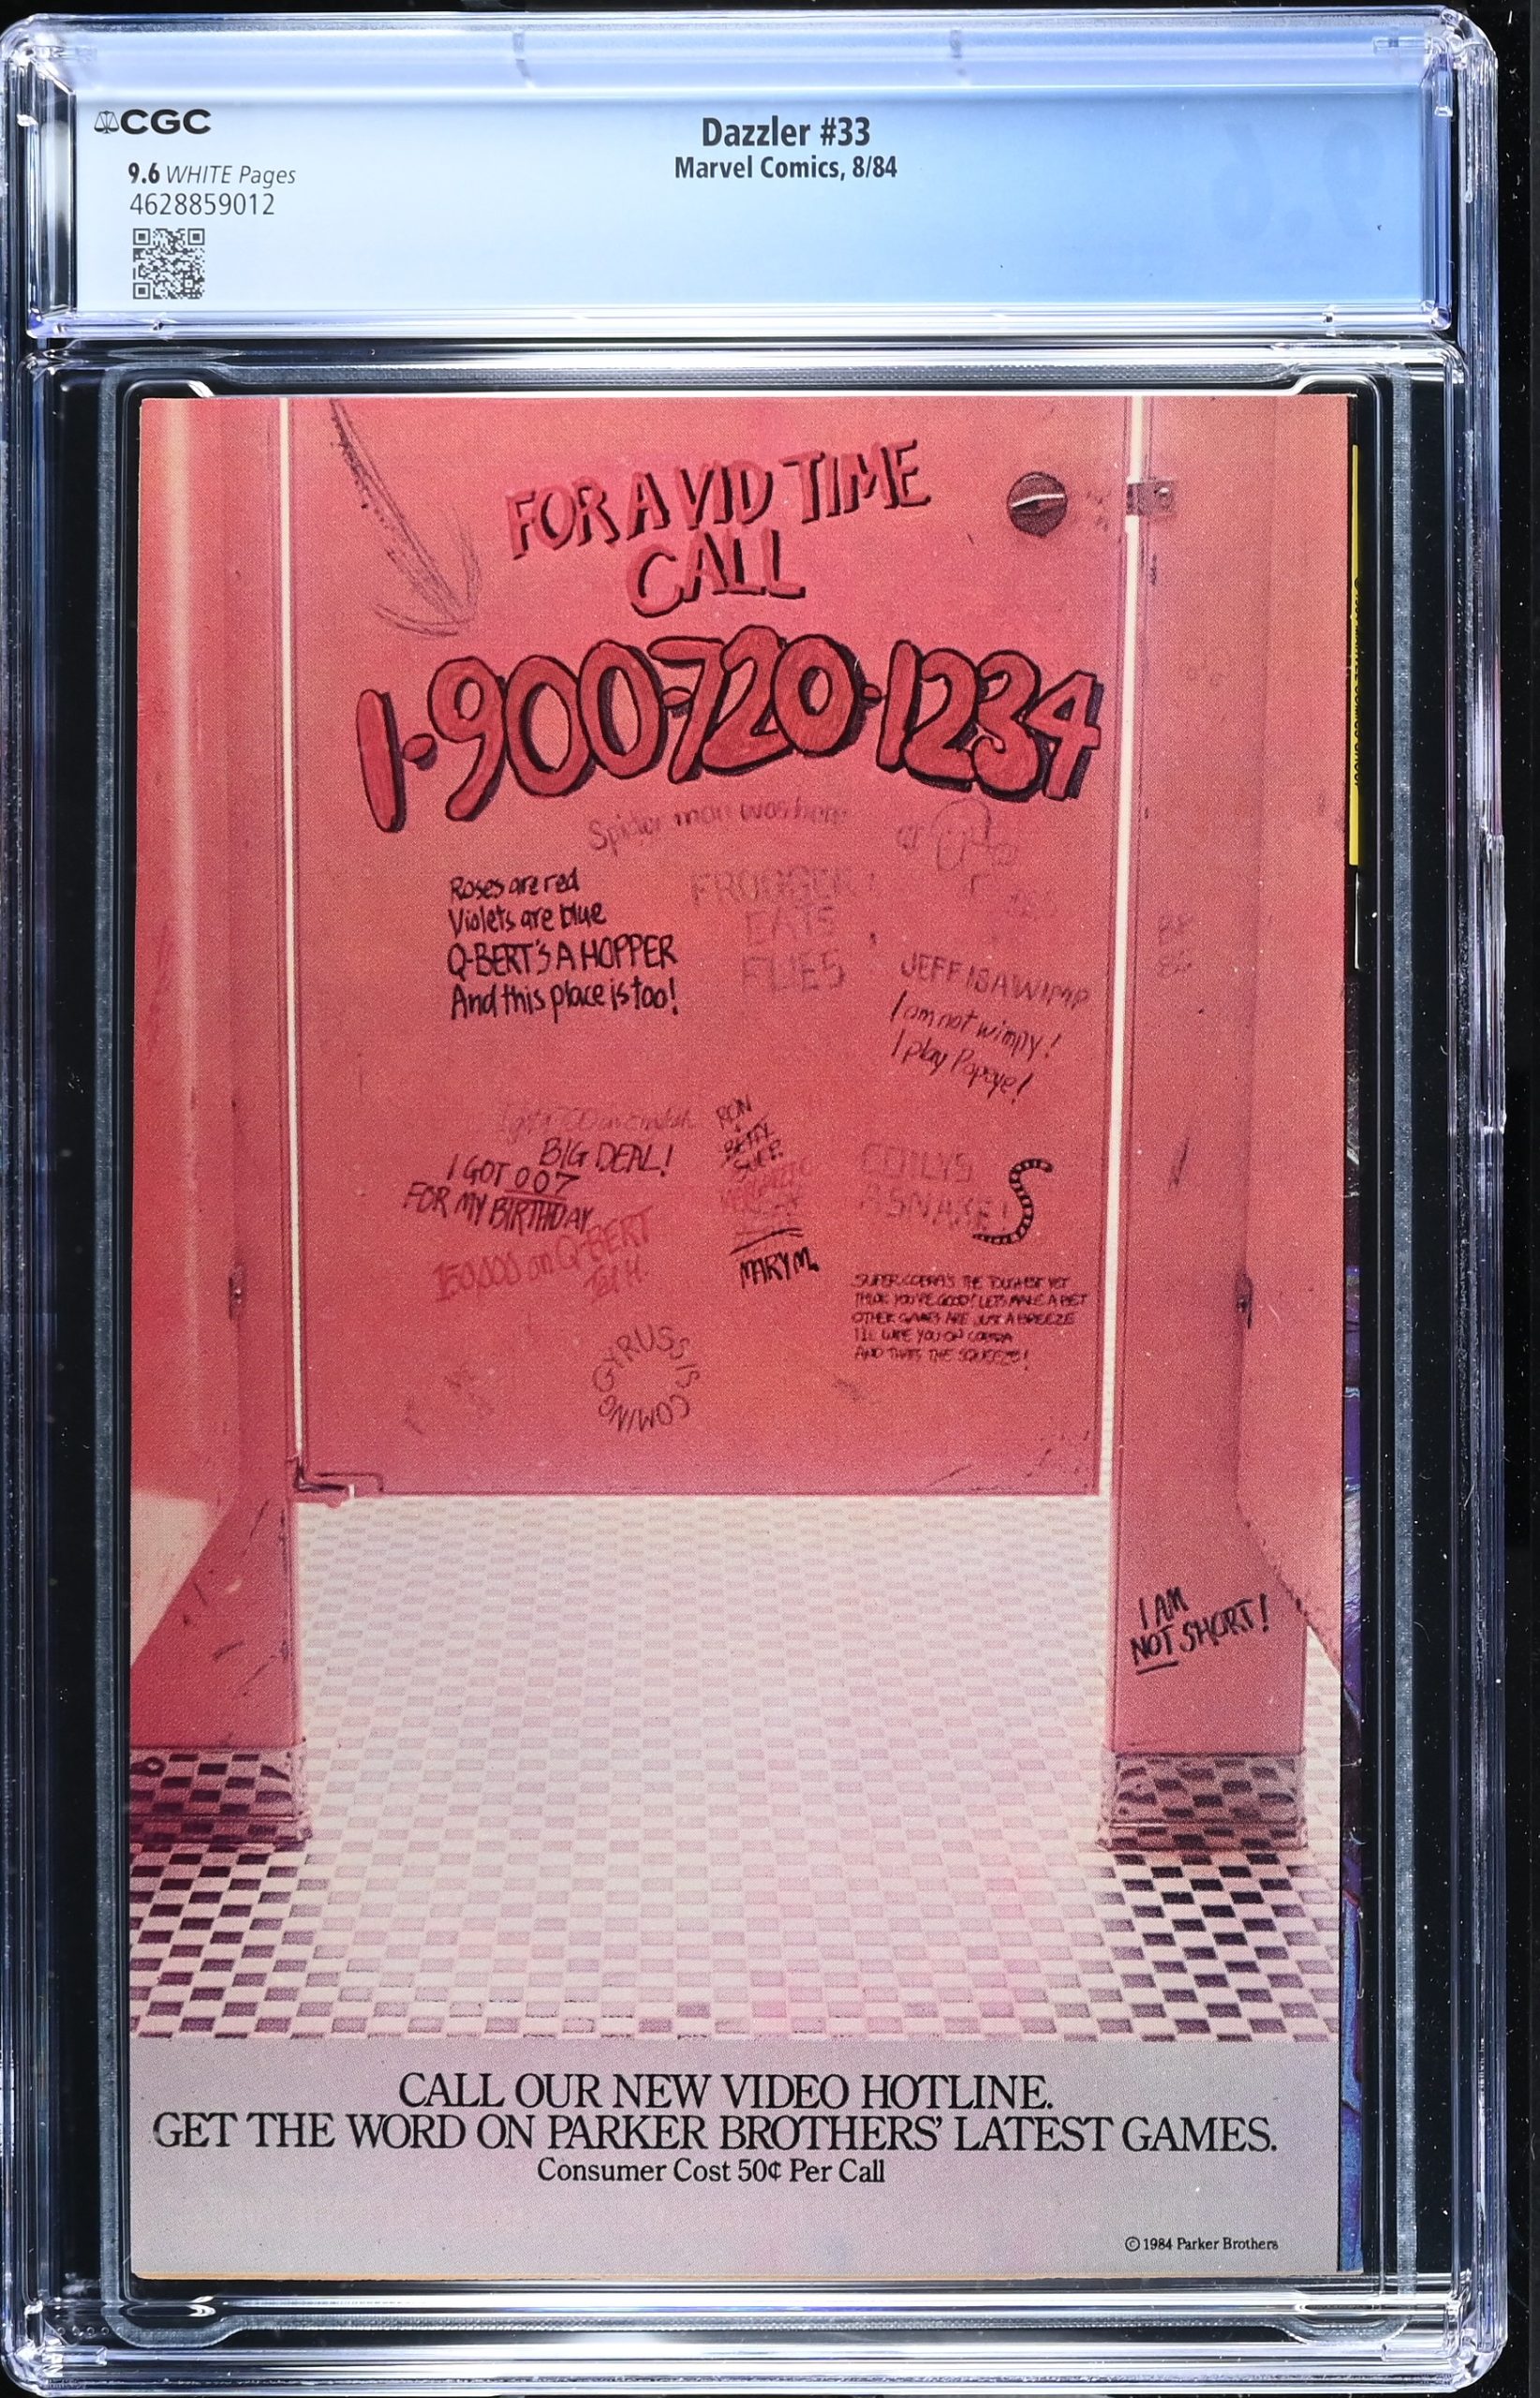 CGC
9.6 WHITE Pages
4628859012
Dazzler #33
Marvel Comics, 8/84
FOR A VID TIME
CALL
1-900-720-1234
Spider man was here
Roses are red
Violets are blue
Q-BERT'S A HOPPER
And this place is too!
FROGGER
EATS
FLIES
JEFF IS A WIMP
I am not wimpy!
I play Popeye!
BIG DEAL!
I GOT 007
FOR MY BIRTHDAY
150,000 on Q-BERT
RON
+
BETTY
SUE B.
MARY M.
COILY'S
A SNAKE!
SUPER COBRA'S THE TOUGHEST YET
THINK YOU'RE GOOD? LETS MAKE A BET
OTHER GAMES ARE JUST A BREEZE
I'LL WIPE YOU ON COBRA
AND THAT'S THE SQUEEZE!
GYRUSS IS COMING
I AM
NOT SHORT!
CALL OUR NEW VIDEO HOTLINE.
GET THE WORD ON PARKER BROTHERS' LATEST GAMES.
Consumer Cost 50¢ Per Call
© 1984 Parker Brothers